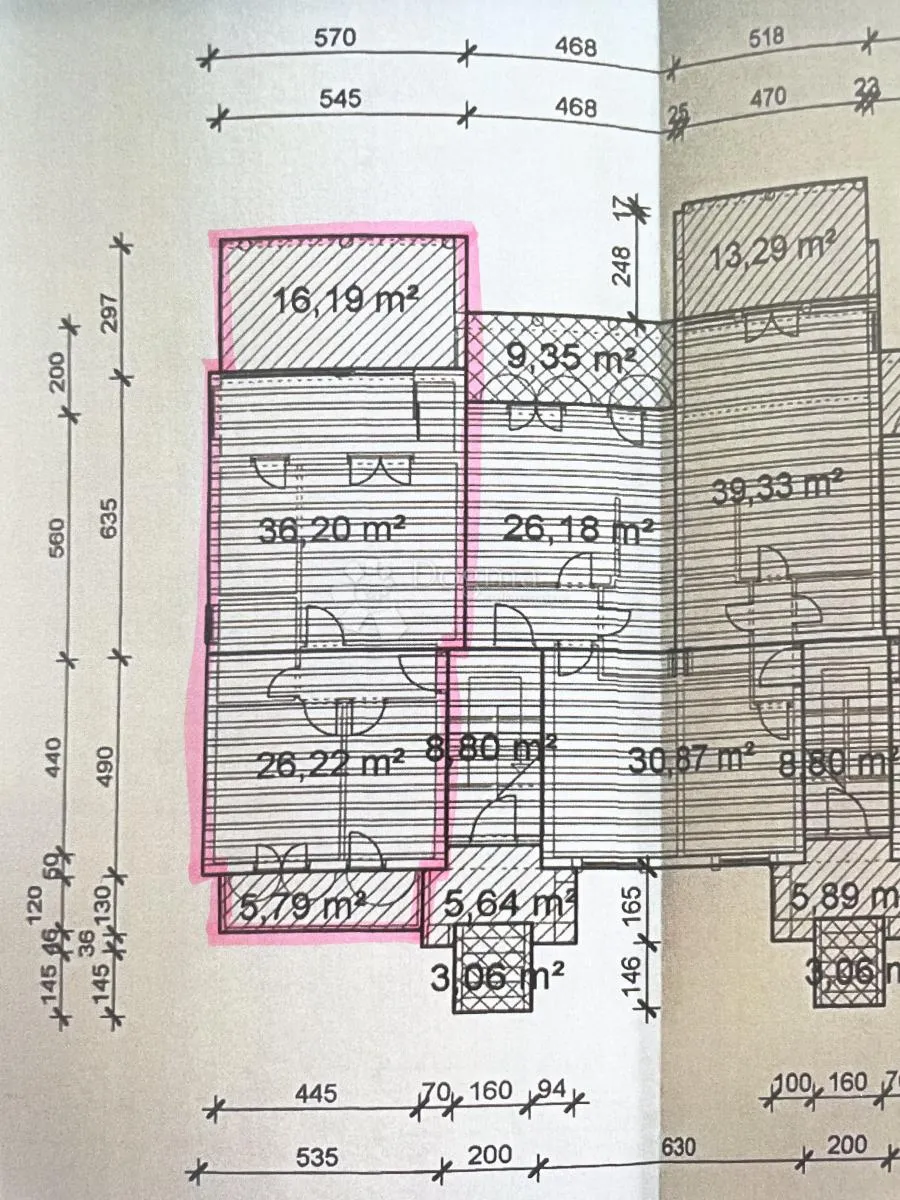 570 468 518
545 468 25 470 23
17
248
297
200
16,19 m²
13,29 m²
9,35 m²
560
635
36,20 m²
26,18 m²
39,33 m²
Dogma
440
490
26,22 m²
8,80 m²
30,87 m²
8,80 m²
50
120
130
36
145
145
5,79 m²
5,64 m²
5,89 m
165
146
3,06 m²
3,06 m
445 70 160 94
100 160
535 200 630 200